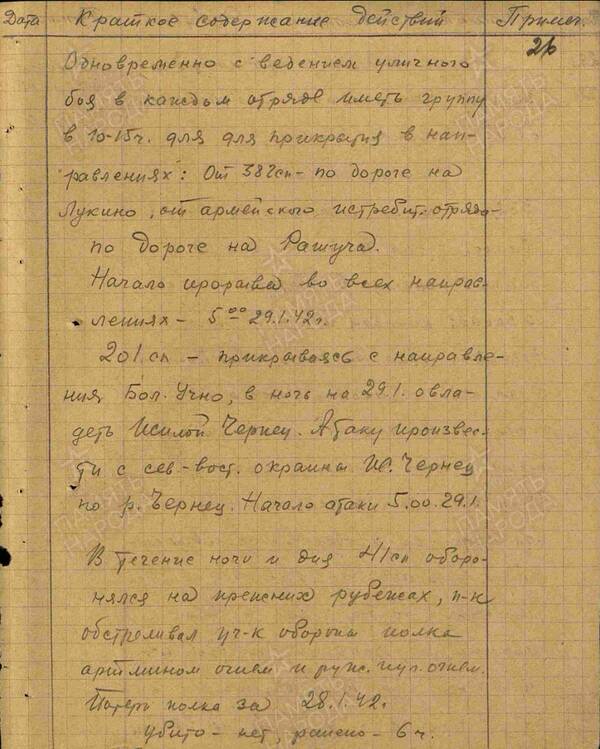 Дата Краткое содержание действий Примеч.
26
Одновременно с ведением уличного
боя в каждом отряде иметь группу
в 10-15ч. для для прикрытия в нап-
равлениях: От 382сп - по дороге на
Лукино, от армейского истребит. отряда -
по дороге на Рашуча.
Начало прорыва во всех направ-
лениях - 5 00 29.1.42г.
201 сп - прикрываясь с направле-
ния Бол. Учно, в ночь на 29.1. овла-
деть Чернец. Атаку произвес-
ти с сев-вост. окраины Чернец
по р. Чернец. Начало атаки 5.00. 29.1.
В течение ночи и дня 41сп оборо-
нялся на прежних рубежах, п-к
обстреливал уч-к обороны полка
арт.мином огнем и руж. пул. огнем.
Потери полка за 28.1.42г.
убито - нет, ранено - 6 ч.
ПАМЯТЬ НАРОДА